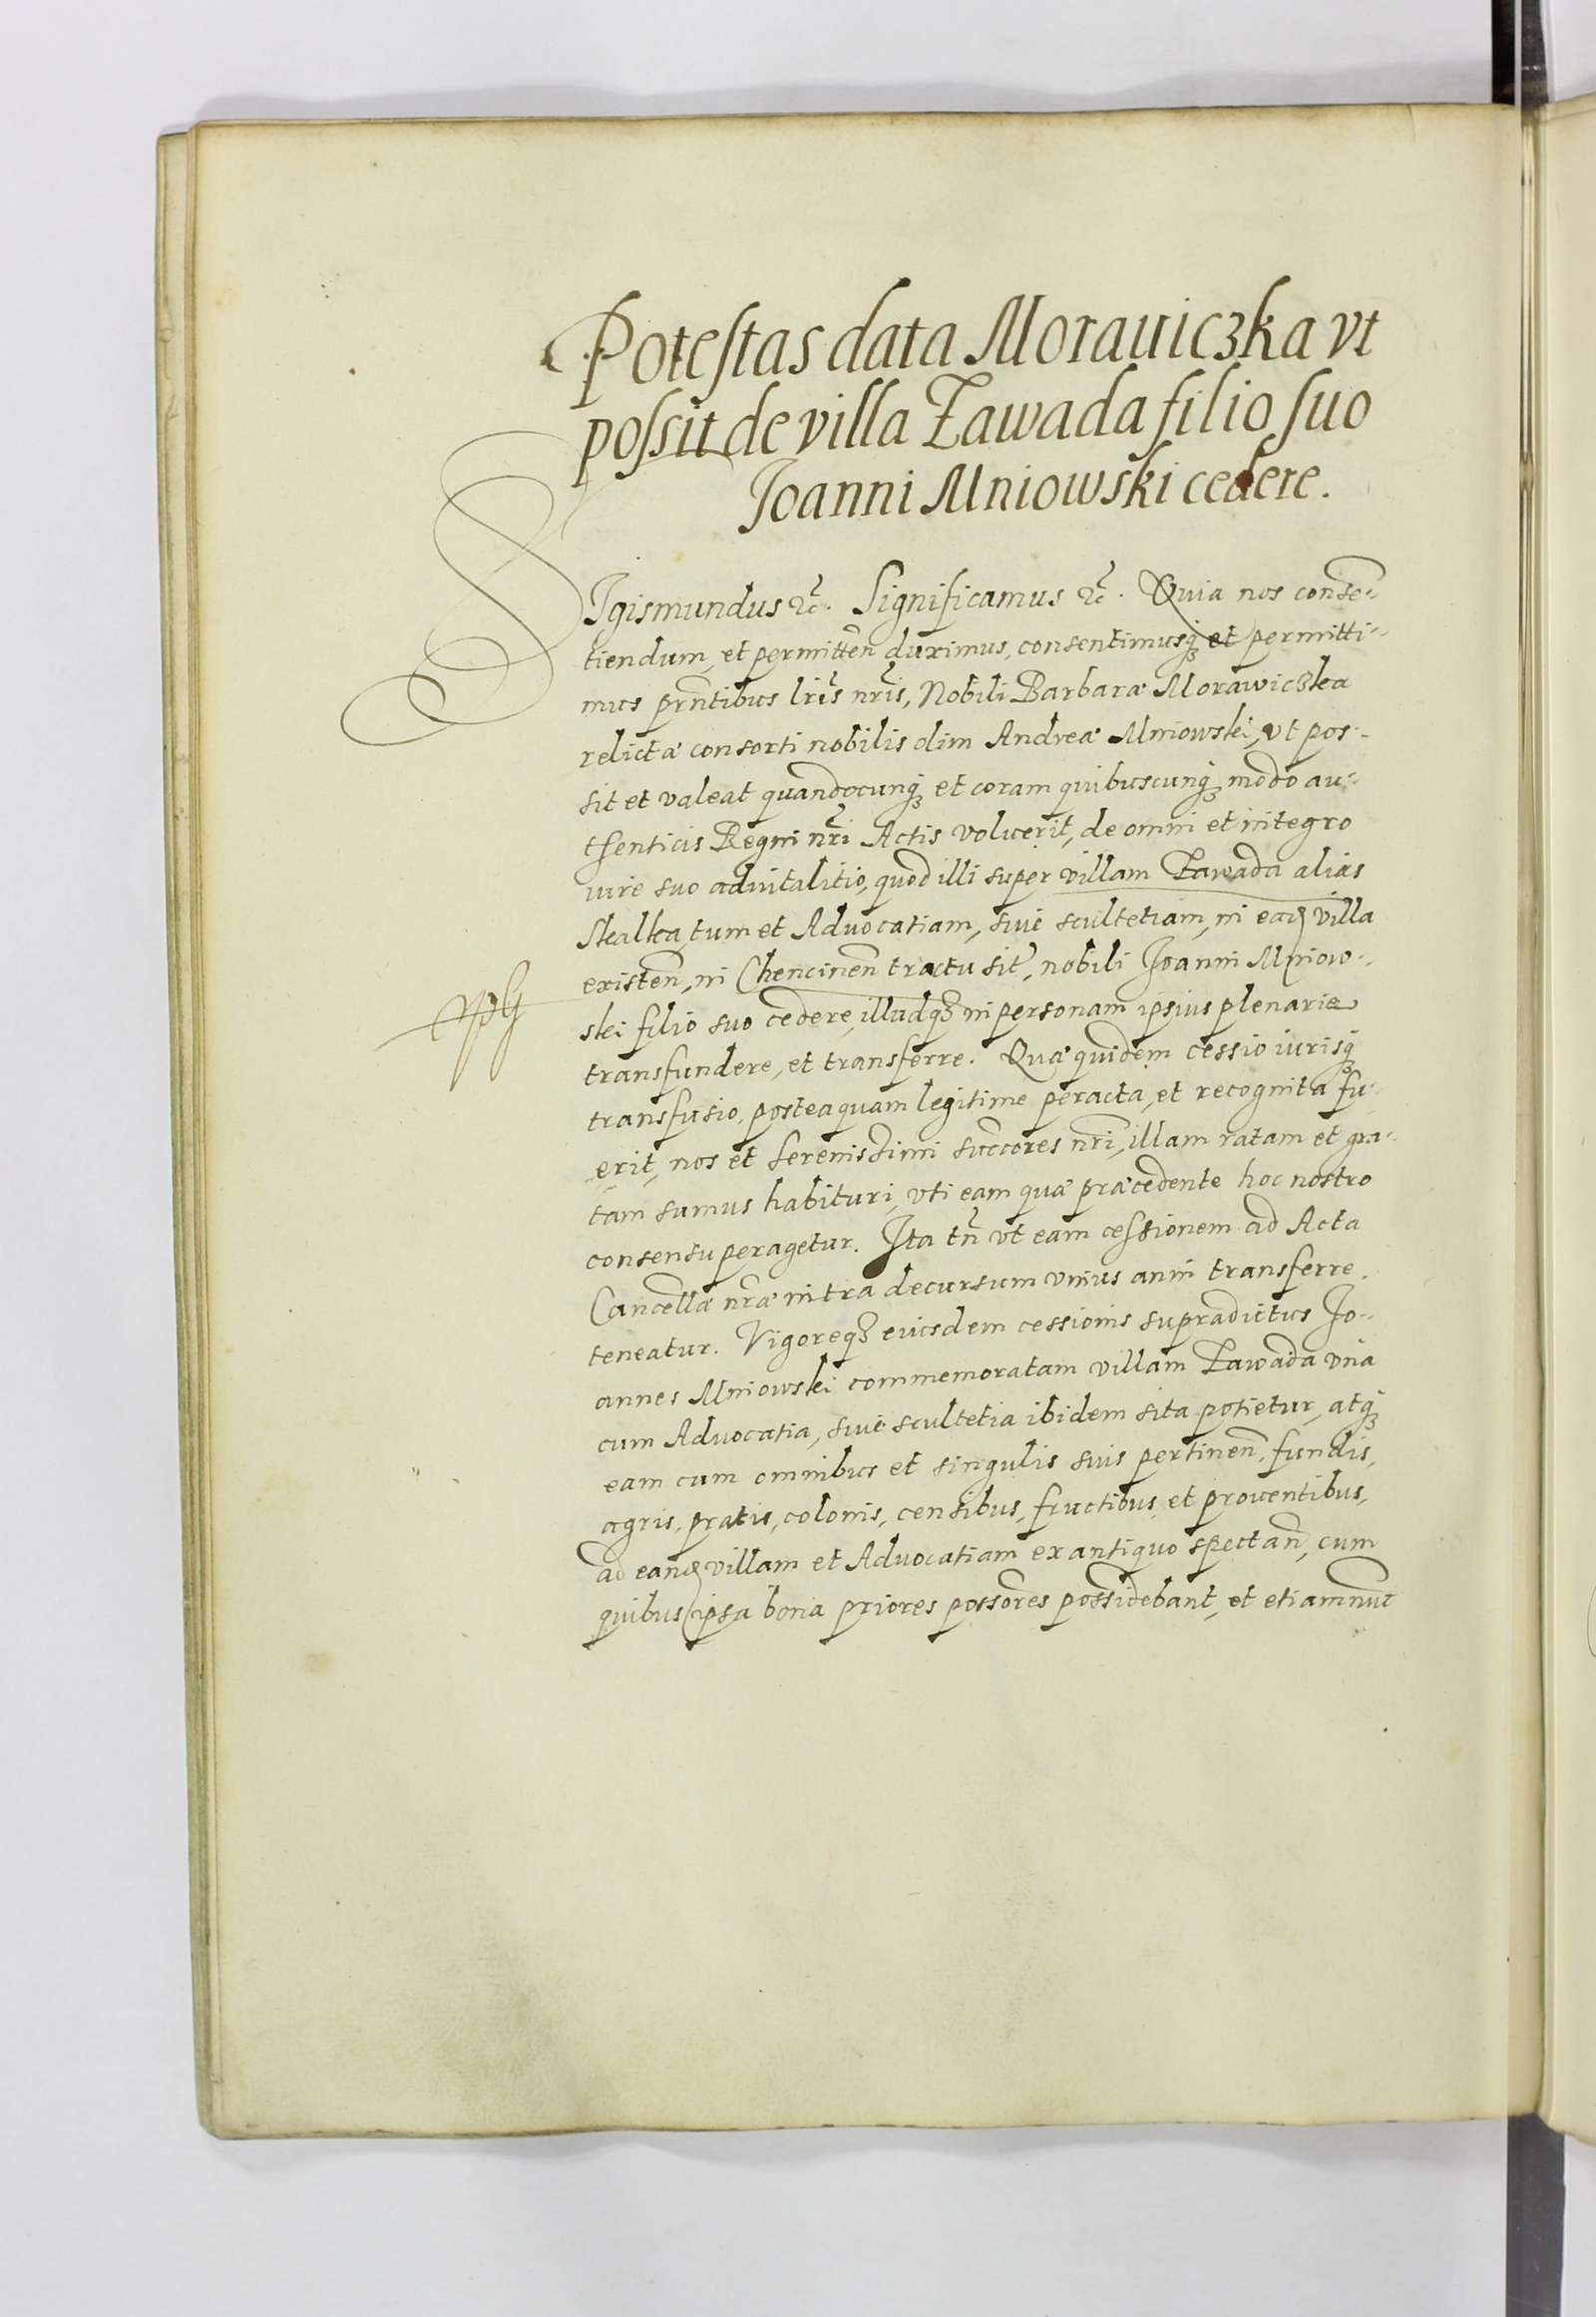 Potestas data Morauiczka vt
possit de villa Zawada filio suo
Joanni Mniowski cedere.
SIgismundus &c. Significamus &c. Quia nos consen-
tiendum, et permitten duximus, consentimusq₃ et permitti-
mus prntibus lris nris, Nobili Barbaræ Morawiczka
relictæ consorti nobilis olim Andreæ Mniowski, vt pos-
sit et valeat quandocunq₃ et coram quibuscunq₃ modo au-
thenticis Regni nri Actis voluerit, de omni et integro
iure suo advitalitio, quod illi super villam Zawada alias
Skalka, tum et Advocatiam, sive scultetiam, in ead villa
existen, in Chencinen tractu sit, nobili Joanni Mniow-
ski filio suo cedere, illudq₃ in personam ipsius plenarie
transfundere, et transferre. Quæ quidem cessio iurisq₃
transfusio, posteaquam legitime peracta, et recognita fu-
erit, nos et Serenissimi succores nri, illam ratam et gra-
tam sumus habituri, vti eam quæ præcedente hoc nostro
consensu peragetur. Ita tn vt eam cessionem ad Acta
Cancellæ nræ intra decursum vnius anni transferre
teneatur. Vigoreq₃ eiusdem cessionis supradictus Jo-
annes Mniowski commemoratam villam Zawada vna
cum Advocatia, sive scultetia ibidem sita potietur, atq₃
eam cum omnibus et singulis suis pertinen, fundis,
agris, pratis, colonis, censibus, fructibus, et proventibus,
ad eand villam et Advocatiam ex antiquo spectan, cum
quibus ipsa bona priores possores possidebant, et etiamnũc